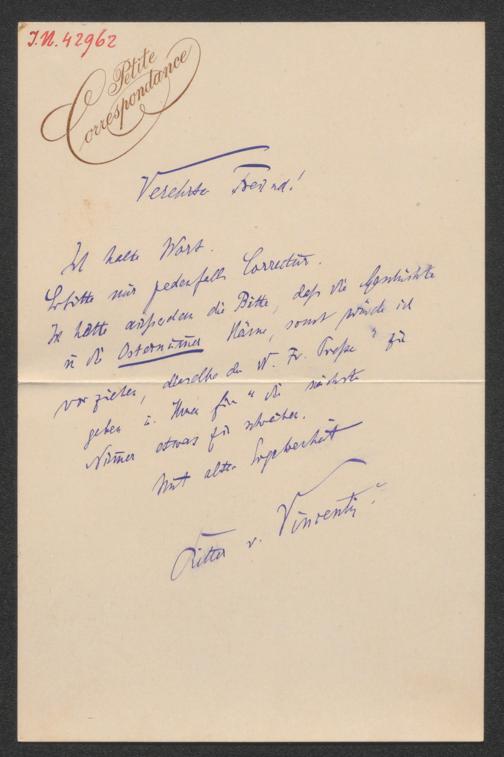 J.N. 42962
Petite
Correspondance
Verehrter Freund!
Ich halte Wort.
Erbitte nur jedenfalls Correctur.
Ich hätte außerdem die Bitte, daß die Geschichte
in die Osternummer käme, sonst würde ich
vorziehen, dieselbe der N. Fr. Presse zu
geben u. Ihnen für die nächste
Numer etwas zu schreiben.
Mit alter Ergebenheit
Ritter v. Vincenti